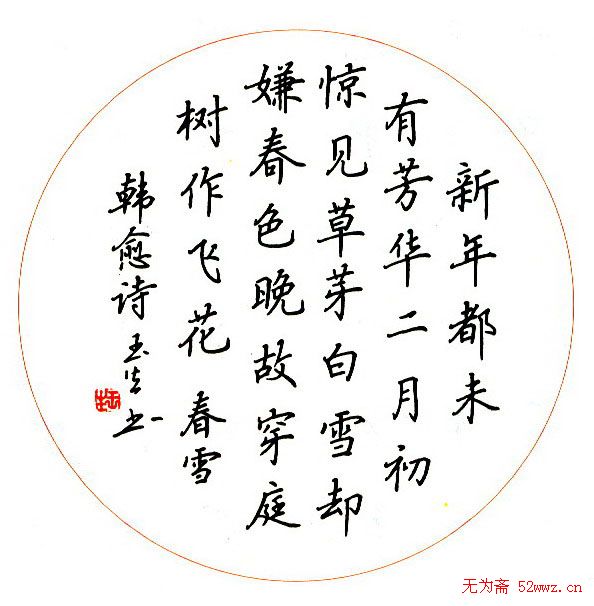 新年都未
有芳华二月初
惊见草芽白雪却
嫌春色晚故穿庭
树作飞花 春雪
韩愈诗 玉生书
无为斋 52wwz.cn